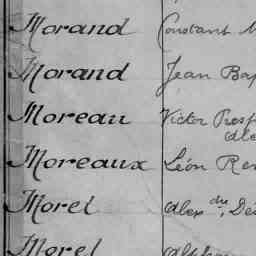 Morand Constant
Morand Jean Bap
Moreau Victor Prosp
Moreaux Léon Ren
Morel Alexdre, Dés
Morel Alphon